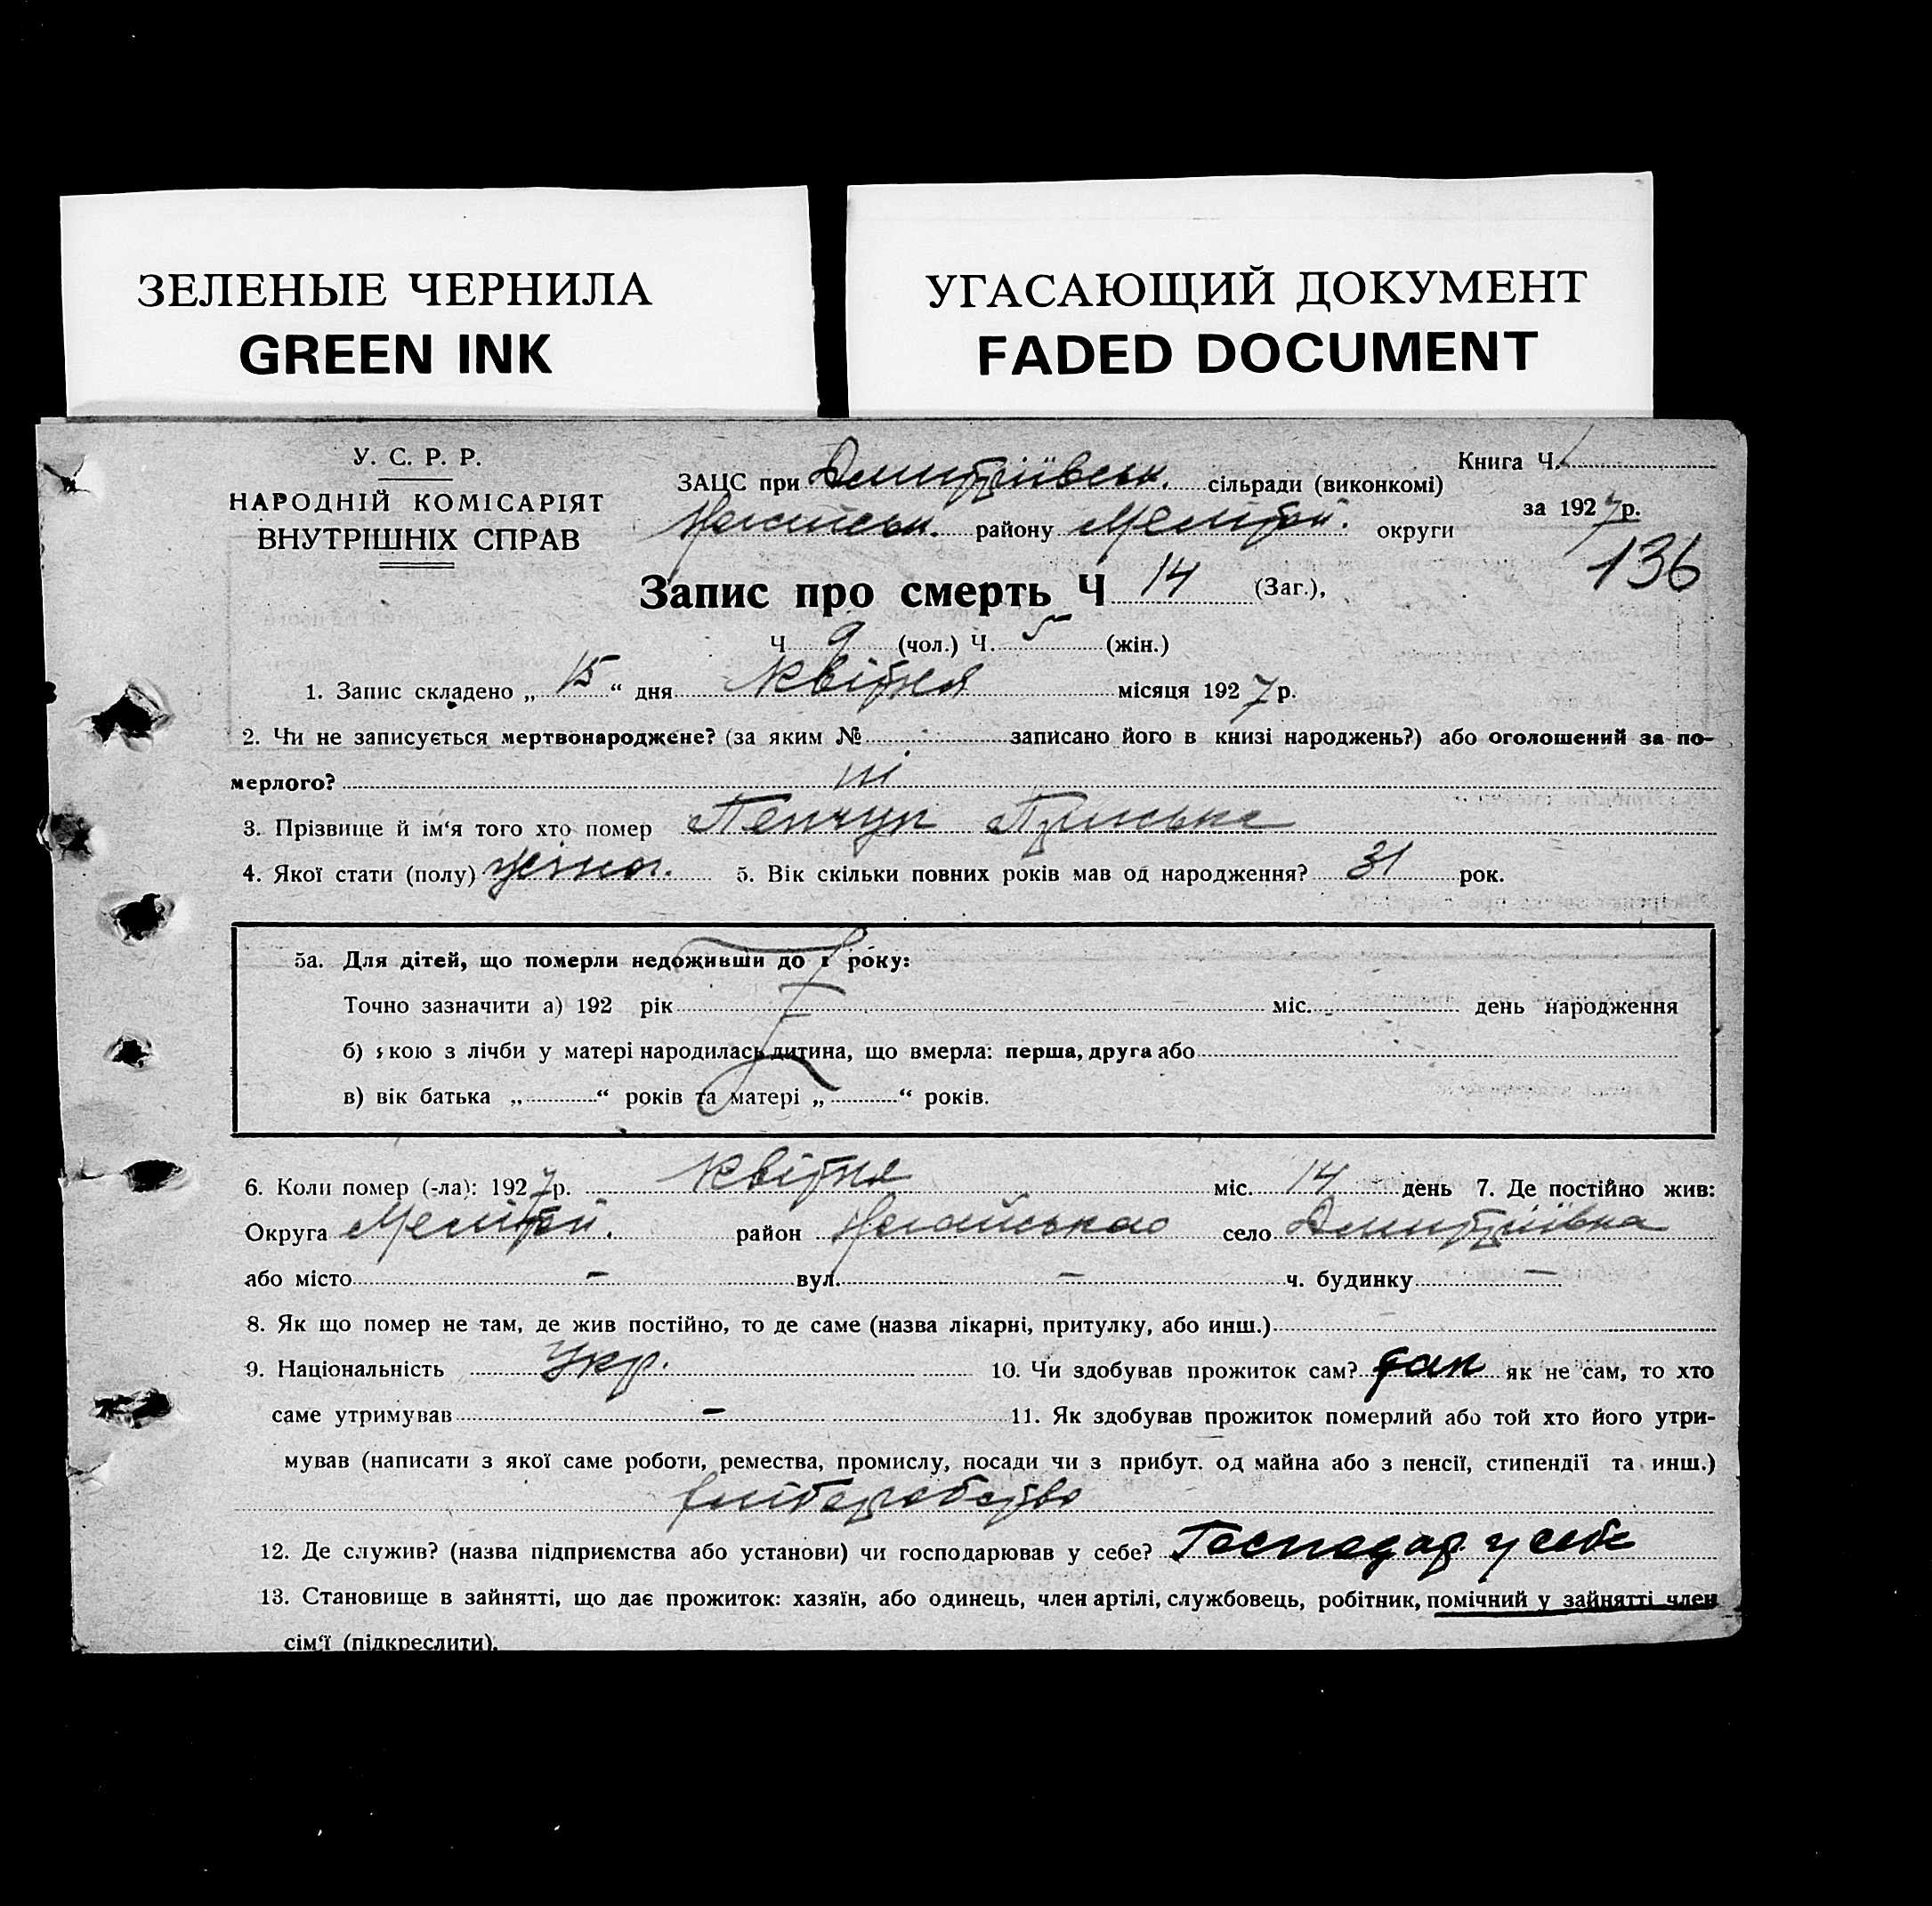 ЗЕЛЕНЫЕ ЧЕРНИЛА
GREEN INK
УГАСАЮЩИЙ ДОКУМЕНТ
FADED DOCUMENT
У. С. Р. Р.
НАРОДНІЙ КОМІСАРІЯТ
ВНУТРІШНІХ СПРАВ
ЗАЦС при Дмитріївськ. сільради (виконкомі)
Ногайськ. району Мелітой. округи
Книга Ч.
за 1927 р.
136
Запис про смерть Ч 14 (Заг.),
Ч 9 (чол.) Ч. 5 (жін.)
1. Запис складено „ 15 “ дня квітня місяця 1927 р.
2. Чи не записується мертвонароджене? (за яким № записано його в книзі народжень?) або оголошений за по-
мерлого? ні
3. Прізвище й ім‘я того хто помер Пріська
4. Якої стати (полу) жіноч. 5. Вік скільки повних років мав од народження? 31 рок.
5а. Для дітей, що померли недоживши до 1 року:
Точно зазначити а) 192 рік міс. день народження
б) якою з лічби у матері народилась дитина, що вмерла: перша, друга або
в) вік батька „ “ років та матері „ “ років.
6. Коли помер (-ла): 1927 р. квітня міс. 14 день 7. Де постійно жив:
Округа Мелітой. район Ногайського село Дмитріївка
або місто - вул. - ч. будинку -
8. Як що помер не там, де жив постійно, то де саме (назва лікарні, притулку, або инш.)
9. Національність Укр. 10. Чи здобував прожиток сам? як не сам, то хто
саме утримував - 11. Як здобував прожиток померлий або той хто його утри-
мував (написати з якої саме роботи, ремества, промислу, посади чи з прибут. од майна або з пенсії, стипендії та инш.)
хліборобство
12. Де служив? (назва підприємства або установи) чи господарював у себе? Господар. у себе
13. Становище в зайнятті, що дає прожиток: хазяїн, або одинець, член артілі, службовець, робітник, помічний у зайнятті член
сім‘ї (підкреслити).